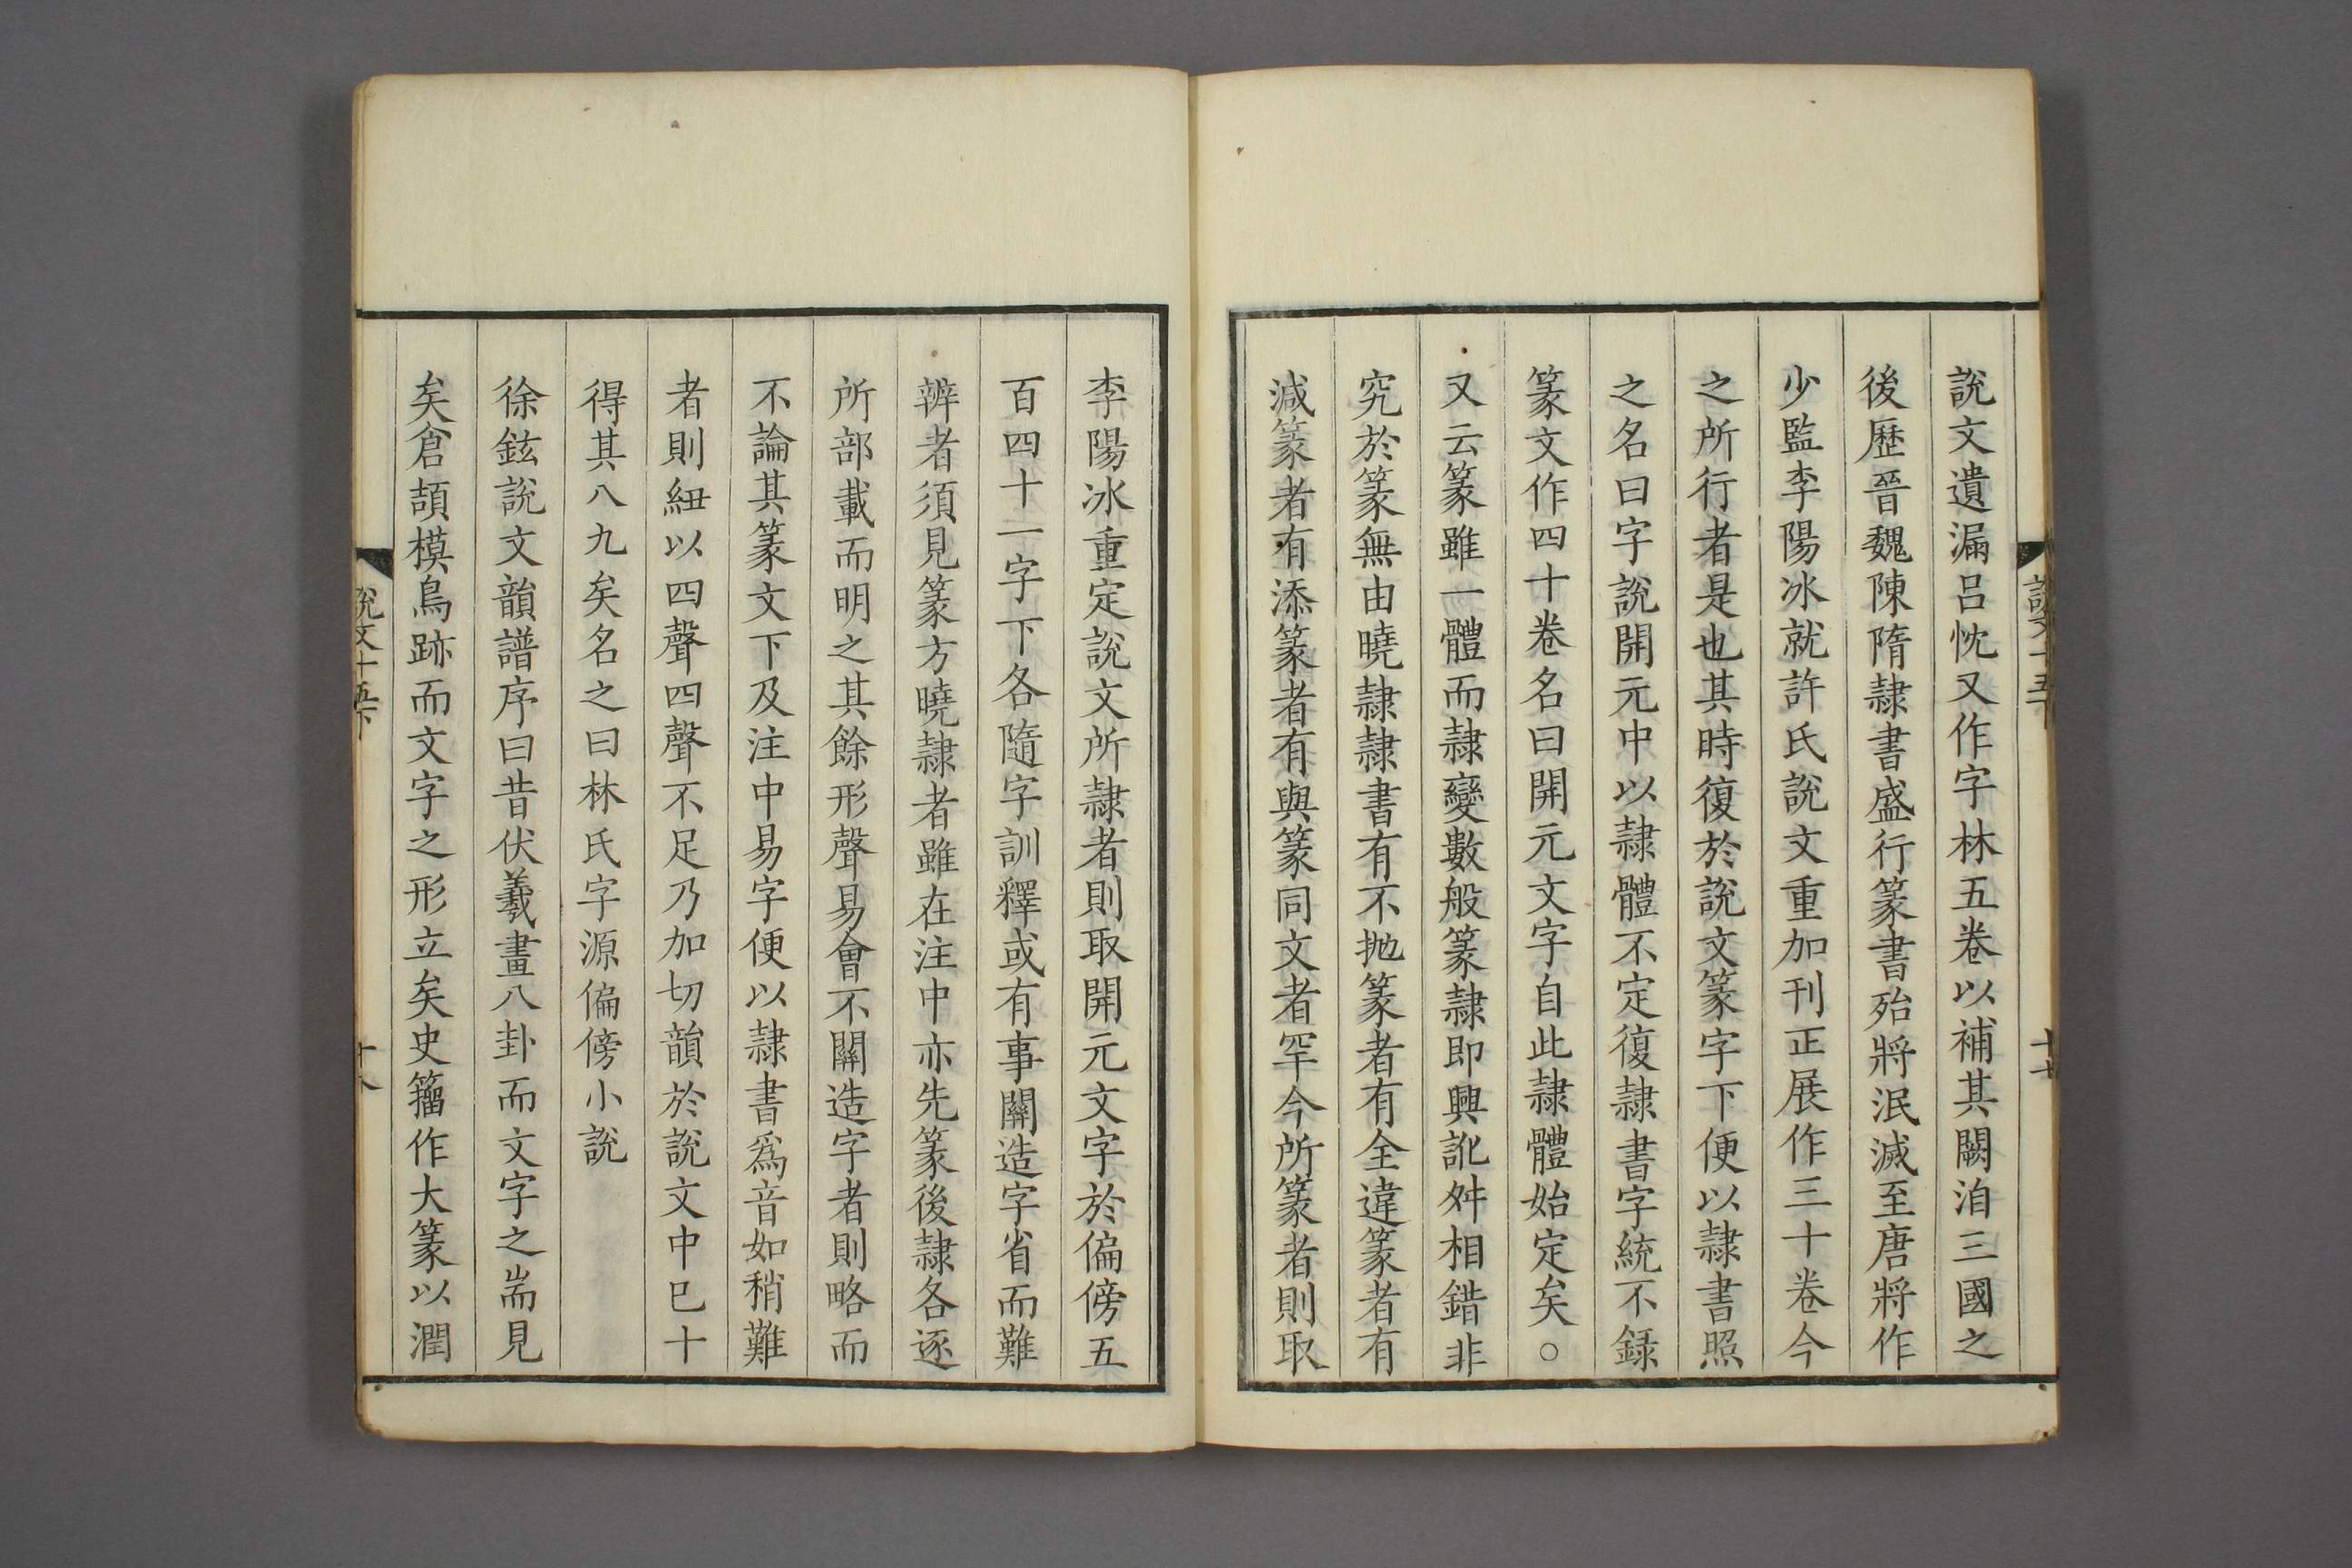 說文遺漏呂忱又作字林五卷以補其闕洎三國之
後歷晉魏陳隋隷書盛行篆書殆將泯滅至唐將作
少監李陽冰就許氏說文重加刊正展作三十卷今
之所行者是也其時復於說文篆字下便以隷書照
之名曰字說開元中以隷體不定復隷書字統不録
篆文作四十卷名曰開元文字自此隷體始定矣○
又云篆雖一體而隷變數般篆隷即興訛舛相錯非
究於篆無由曉隷隷書有不抛篆者有全違篆者有
減篆者有添篆者有與篆同文者罕今所篆者則取
說文十五下
十七
李陽冰重定說文所隷者則取開元文字於偏傍五
百四十一字下各隨字訓釋或有事關造字省而難
辨者須見篆方曉隷者雖在注中亦先篆後隷各逐
所部載而明之其餘形聲易會不關造字者則略而
不論其篆文下及注中易字便以隷書爲音如稍難
者則紐以四聲四聲不足乃加切韻於說文中已十
得其八九矣名之曰林氏字源偏傍小說
徐鉉說文韻譜序曰昔伏羲畫八卦而文字之耑見
矣倉頡模鳥跡而文字之形立矣史籀作大篆以潤
說文十五下
十八